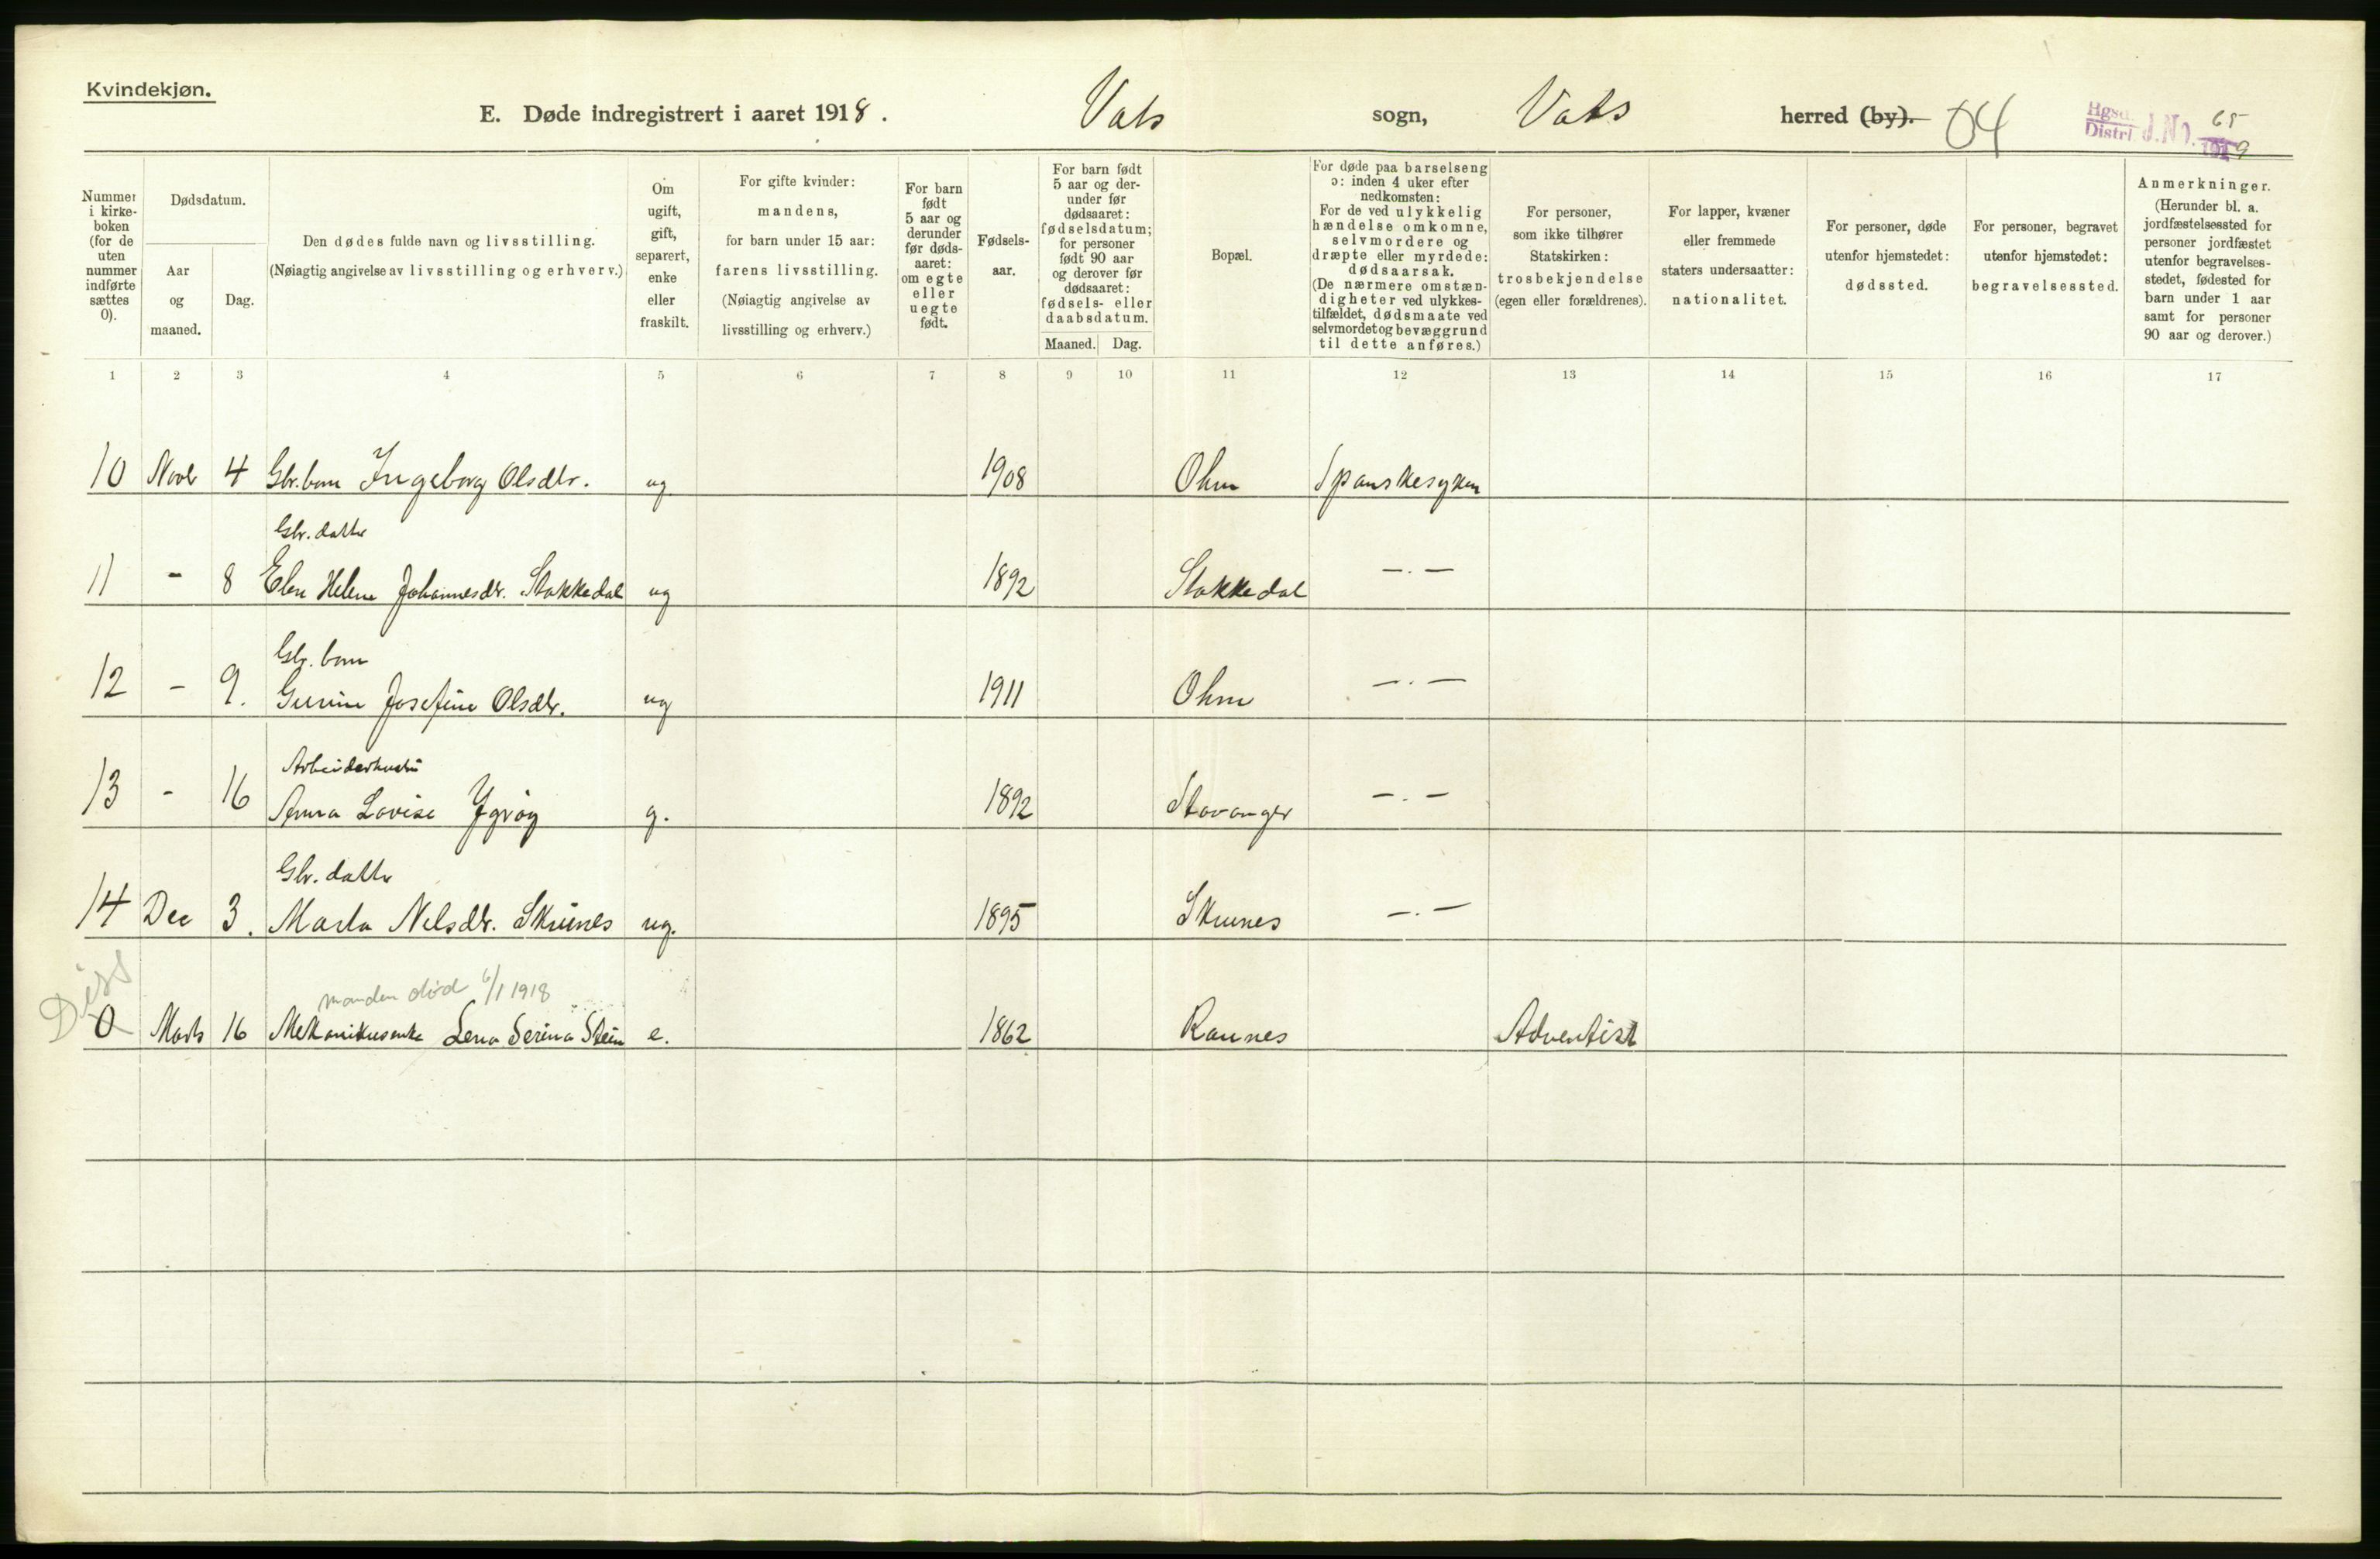 Kvindekjøn.
E. Døde indregistrert i aaret 1918. Vats sogn, Vats herred (by). 64
J.No. 65 1919
Nummer i kirkeboken (for de uten nummer indførte sættes 0).
Dødsdatum.
Aar og maaned.
Dag.
Den dødes fulde navn og livsstilling.
(Nøiagtig angivelse av livsstilling og erhverv.)
Om ugift, gift, separert, enke eller fraskilt.
For gifte kvinder:
mandens,
for barn under 15 aar:
farens livsstilling.
(Nøiagtig angivelse av
livsstilling og erhverv.)
For barn født 5 aar og derunder før dødsaaret: om egte eller uegte født.
Fødselsaar.
For barn født 5 aar og derunder før dødsaaret: fødselsdatum; for personer født 90 aar og derover før dødsaaret: fødsels- eller daabsdatum.
Maaned. Dag.
Bopæl.
For døde paa barselseng ɔ: inden 4 uker efter nedkomsten:
For de ved ulykkelig hændelse omkomne, selvmordere og dræpte eller myrdede: dødsaarsak.
(De nærmere omstændigheter ved ulykkestilfældet, dødsmaate ved selvmordet og bevæggrund til dette anføres.)
For personer, som ikke tilhører Statskirken: trosbekjendelse (egen eller forældrenes).
For lapper, kvæner eller fremmede staters undersaatter: nationalitet.
For personer, døde utenfor hjemstedet: dødssted.
For personer, begravet utenfor hjemstedet: begravelsessted.
Anmerkninger.
(Herunder bl. a. jordfæstelsessted for personer jordfæstet utenfor begravelsesstedet, fødested for barn under 1 aar samt for personer 90 aar og derover.)
1 2 3 4 5 6 7 8 9 10 11 12 13 14 15 16 17
10 Novb 4 Gbr. barn Ingeborg Olsdtr. ug 1908 Ohm Spanskesyken
Gbr. datter
11 - 8 Elen Helene Johannesdr. Stakkedal ug 1892 Stakkedal —.—
Gbr. barn
12 - 9. Gurine Josefine Olsdtr. ug 1911 Ohm —.—
Arbeiderhustru
13 - 16 Anna Lovise g. 1892 Stavanger —.—
Gbr. datter
14 Dec 3. Marta Nilsdtr. Skrunes ug. 1895 Skrunes —.—
manden død 6/1 1918
0 Marts 16 Mekanikusenke Lena Serina Stein e. 1862 Raunes Adventist